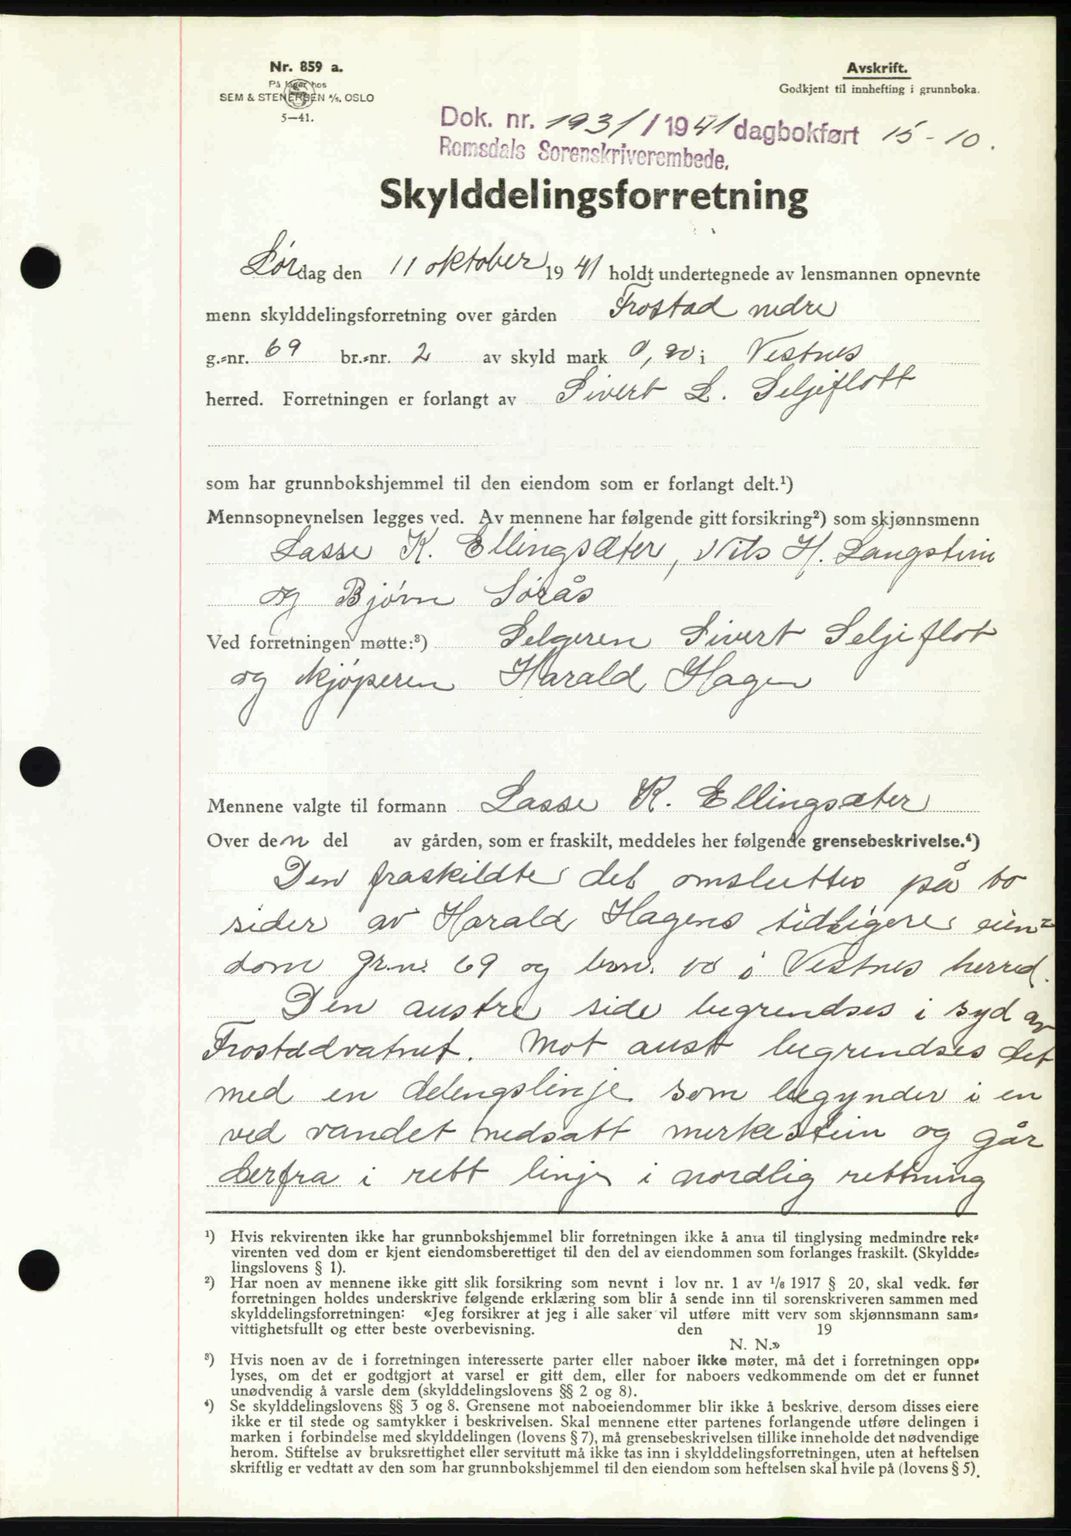 Nr. 859 a.
På lager hos
SEM & STENERSEN A/S, OSLO
5—41.
Avskrift.
Godkjent til innhefting i grunnboka.
Dok. nr. 1931/1941 dagbokført 15-10.
Romsdals Sorenskriverembede.
Skylddelingsforretning
Lørdag den 11 oktober 1941 holdt undertegnede av lensmannen opnevnte
menn skylddelingsforretning over gården Frostad nedre
g.-nr. 69 br.-nr. 2 av skyld mark 0,90 i Vestnes
herred. Forretningen er forlangt av Sivert L. Seljeflott
som har grunnbokshjemmel til den eiendom som er forlangt delt.¹)
Mennsopnevnelsen legges ved. Av mennene har følgende gitt forsikring²) som skjønnsmenn
Lasse K. Ellingsæter, Nils H. Langstein
og Bjørn Sørås
Ved forretningen møtte:³) Selgeren Sivert Seljeflot
og kjøperen Harald Hagen
Mennene valgte til formann Lasse K. Ellingsæter
Over den del av gården, som er fraskilt, meddeles her følgende grensebeskrivelse.⁴)
Den fraskildte del omsluttes på to
sider av Harald Hagens tidligere eien=
dom gr.n. 69 og brn. 10 i Vestnes herred.
Den austre side begrendses i syd av
Frostadvatnet. Mot aust begrendses det
med en delengslinje som begynder i en
ved vandet nedsatt merkestein og går
derfra i rett linje i nordlig rettning
¹) Hvis rekvirenten ikke har grunnbokshjemmel blir forretningen ikke å anta til tinglysing medmindre rek-
virenten ved dom er kjent eiendomsberettiget til den del av eiendommen som forlanges fraskilt. (Skyldde-
lingslovens § 1).
²) Har noen av mennene ikke gitt slik forsikring som nevnt i lov nr. 1 av ¹/₆ 1917 § 20, skal vedk. før
forretningen holdes underskrive følgende erklæring som blir å sende inn til sorenskriveren sammen med
skylddelingsforretningen: «Jeg forsikrer at jeg i alle saker vil utføre mitt verv som skjønnsmann sam-
vittighetsfullt og etter beste overbevisning. den 19
N. N.»
³) Hvis noen av de i forretningen interesserte parter eller naboer ikke møter, må det i forretningen opp-
lyses, om det er godtgjort at varsel er gitt dem, eller for naboers vedkommende om det er funnet
unødvendig å varsle dem (skylddelingslovens §§ 2 og 8).
⁴) Se skylddelingslovens §§ 3 og 8. Grensene mot naboeiendommer blir ikke å beskrive, dersom disses eiere
ikke er til stede og samtykker i beskrivelsen. Skal mennene etter partenes forlangende utføre delingen i
marken i forbindelse med skylddelingen (lovens § 7), må grensebeskrivelsen tillike inneholde det nødvendige
herom. Stiftelse av bruksrettighet eller servitutt må ikke tas inn i skylddelingsforretningen, uten at heftelsen
skriftlig er vedtatt av den som har grunnbokshjemmel til den eiendom som heftelsen skal hvile på (lovens § 5).